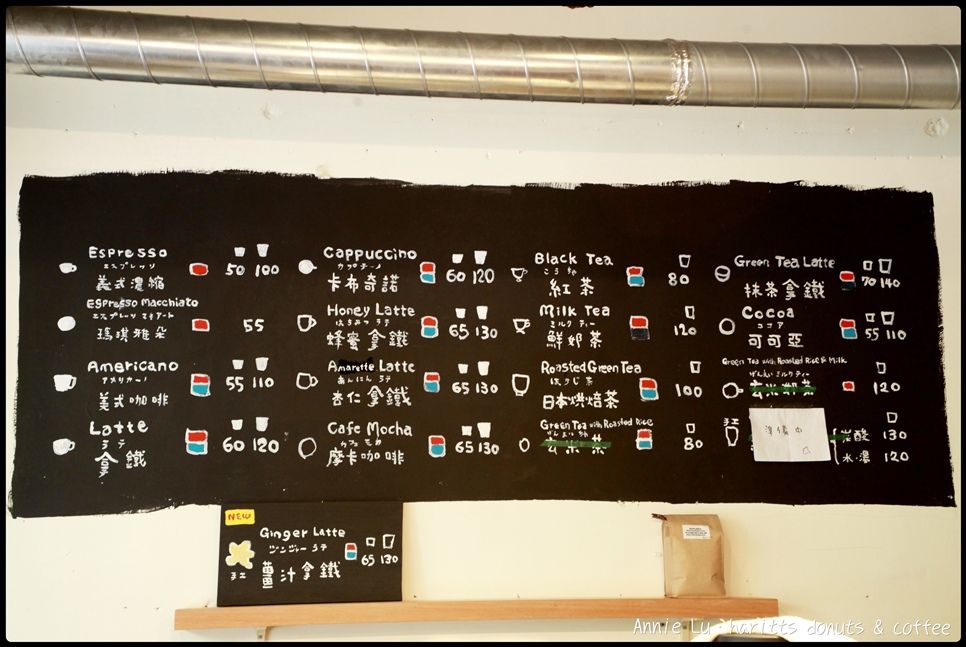 Espresso
エスプレッソ
義式濃縮
50 100
Espresso Macchiato
瑪琪雅朵
55
Americano
アメリカーノ
美式咖啡
55 110
Latte
ラテ
拿鐵
60 120
Cappuccino
カプチーノ
卡布奇諾
60 120
Honey Latte
はちみつ ラテ
蜂蜜拿鐵
65 130
Amarette Latte
あんにん ラテ
杏仁拿鐵
65 130
Cafe Mocha
カフェ モカ
摩卡咖啡
65 130
Black Tea
こう茶
紅茶
80
Milk Tea
ミルク ティー
鮮奶茶
120
Roasted Green Tea
ほうじ茶
日本烘焙茶
100
Green Tea with Roasted Rice
玄米茶
80
Green Tea Latte
抹茶拿鐵
70 140
Cocoa
ココア
可可亞
55 110
Green Tea with Roasted Rice & Milk
げんまい ミルクティー
玄米奶茶
120
手工
準備中
炭酸 130
水濃 120
NEW
Ginger Latte
ジンジャー ラテ
薑汁拿鐵
手工
65 130
Annie Lu · haritts donuts & coffee